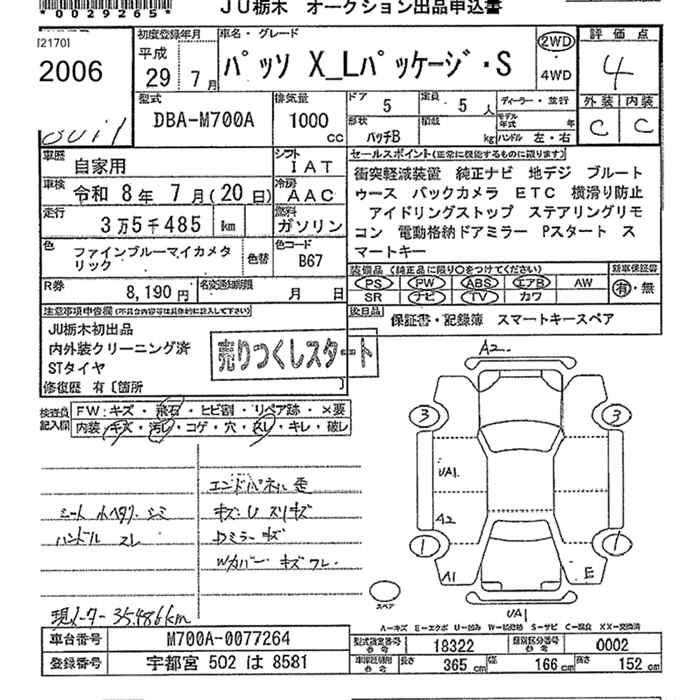 *0029265*
JU栃木 オークション出品申込書
[21701
2006
初度登録年月
平成
29年 7月
車名・グレード
パッソ X_Lパッケージ・S
2WD
・
4WD
評価点
4
外装 内装
C C
型式
DBA-M700A
排気量
1000
CC
ドア
5
定員
5 人
ディーラー・並行
形状
ハッチB
積載
kg
モデル年式 年
ハンドル 左・右
車歴
自家用
シフト
IAT
セールスポイント(正常に機能するものに限ります)
衝突軽減装置 純正ナビ 地デジ ブルート
ゥース バックカメラ ETC 横滑り防止
アイドリングストップ ステアリングリモ
コン 電動格納ドアミラー Pスタート ス
マートキー
車検
令和 8年 7月(20日)
冷房
AAC
走行
3万5千485 km
燃料
ガソリン
色
ファインブルーマイカメタ
リック
色替
色コード
B67
装備品(純正品に限り○をつけてください)
PS PW ABS エアB AW
SR ナビ TV カワ
新車保証書
有・無
R券
8,190円
名変通知期限
月 日
後日品
保証書・記録簿 スマートキースペア
注意事項申告欄(不具合内容等は具体的に記入して下さい)
JU栃木初出品
内外装クリーニング済
STタイヤ
売りつくしスタート
修復歴 有〔箇所 〕
検査員
記入欄
FW:キズ・飛石・ヒビ割・リペア跡・×要
内装:キズ・汚レ・コゲ・穴・スレ・キレ・破レ
シート
シミ
ハンドル スレ
エンドパネル歪
キズ:U スリキズ
Dミラーキズ
Wカバー キズ ワレ
現メーター 35,486km
A2
3
3
UA1
A2
1
1
A1
E
UA1
スペア
A-キズ E-エクボ U-凹み W-補修跡 S-サビ C-腐食 XX-交換済
車台番号
M700A-0077264
型式指定番号
参考
18322
類別区分番号
参考
0002
登録番号
宇都宮 502 は 8581
参考
長さ
365 cm
幅
166 cm
高さ
152 cm